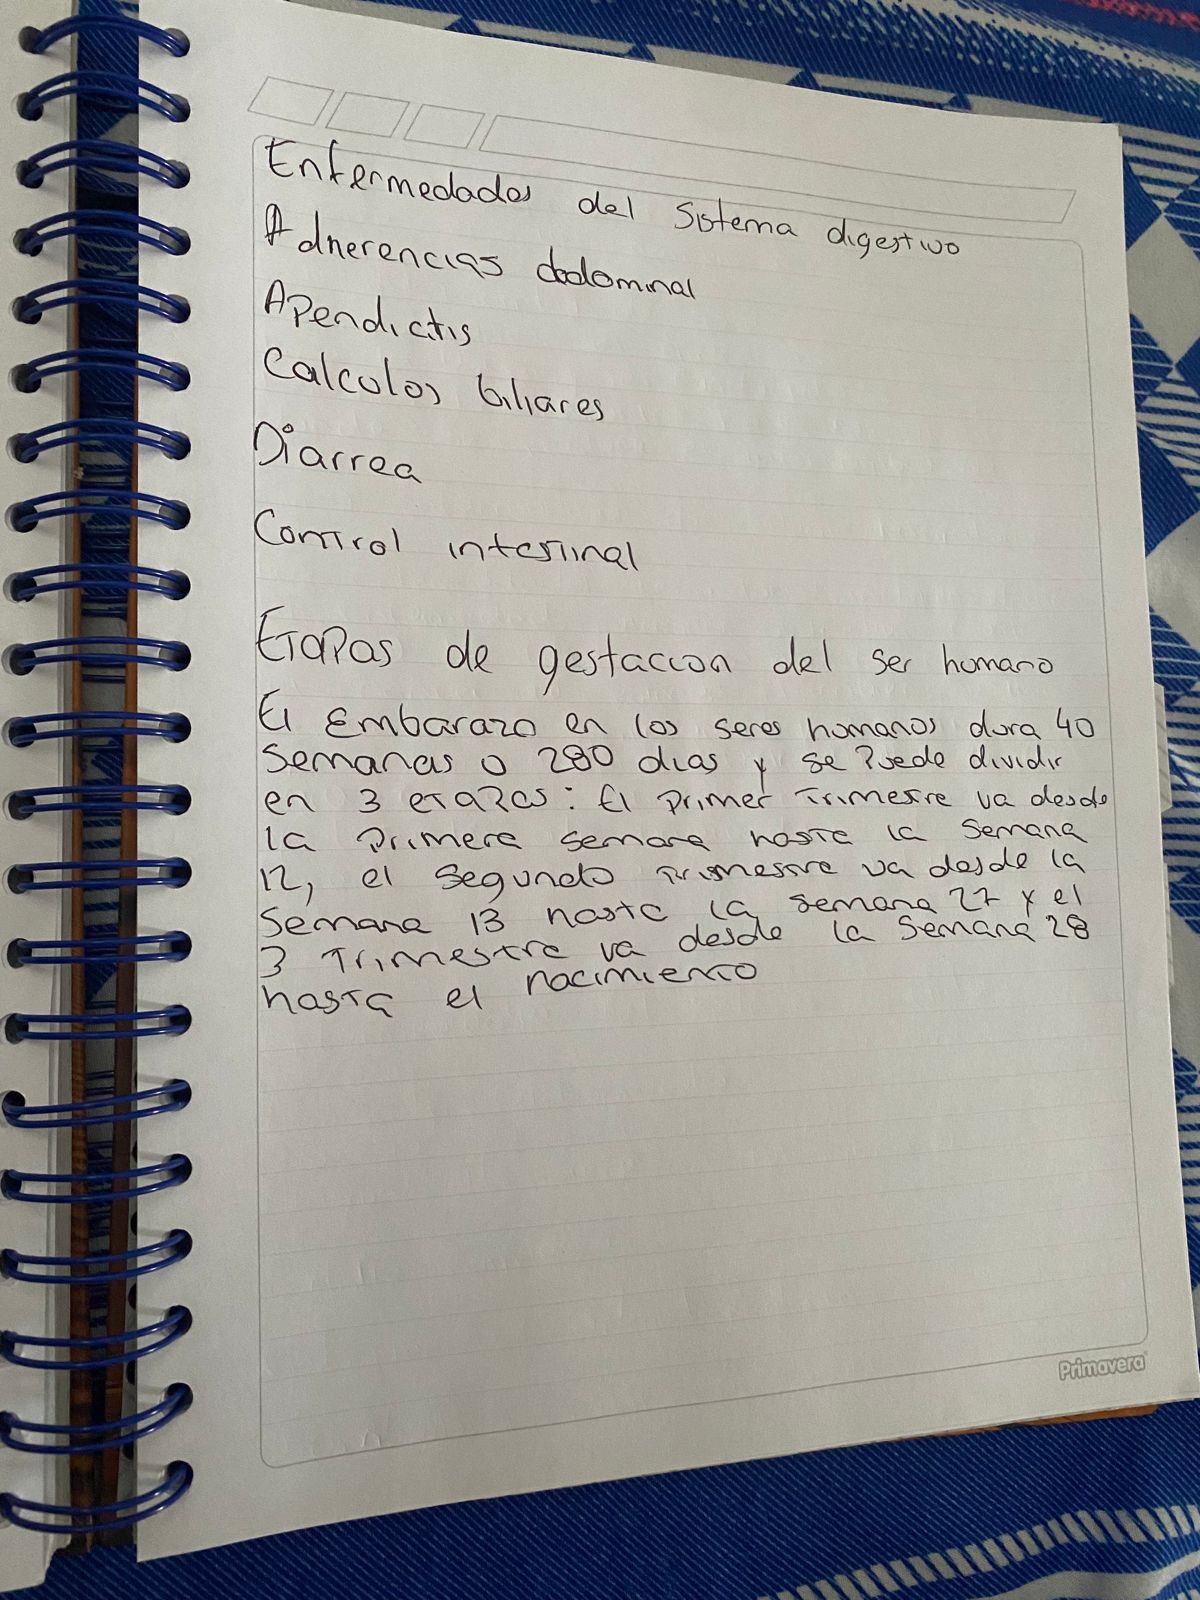 Enfermedades del Sistema digestivo
Adherencias abdominal
Apendicitis
Calculos biliares
Diarrea
Control intestinal
Etapas de gestaccion del ser humano
El Embarazo en los seres humanos dura 40
semanas o 280 dias y se Puede dividir
en 3 etapas: El primer Trimestre va desde
la Primera semana hasta la semana
12, el segundo trimestre va desde la
semana 13 hasta la semana 27 y el
3 Trimestre va desde la semana 28
hasta el nacimiento
Primavera